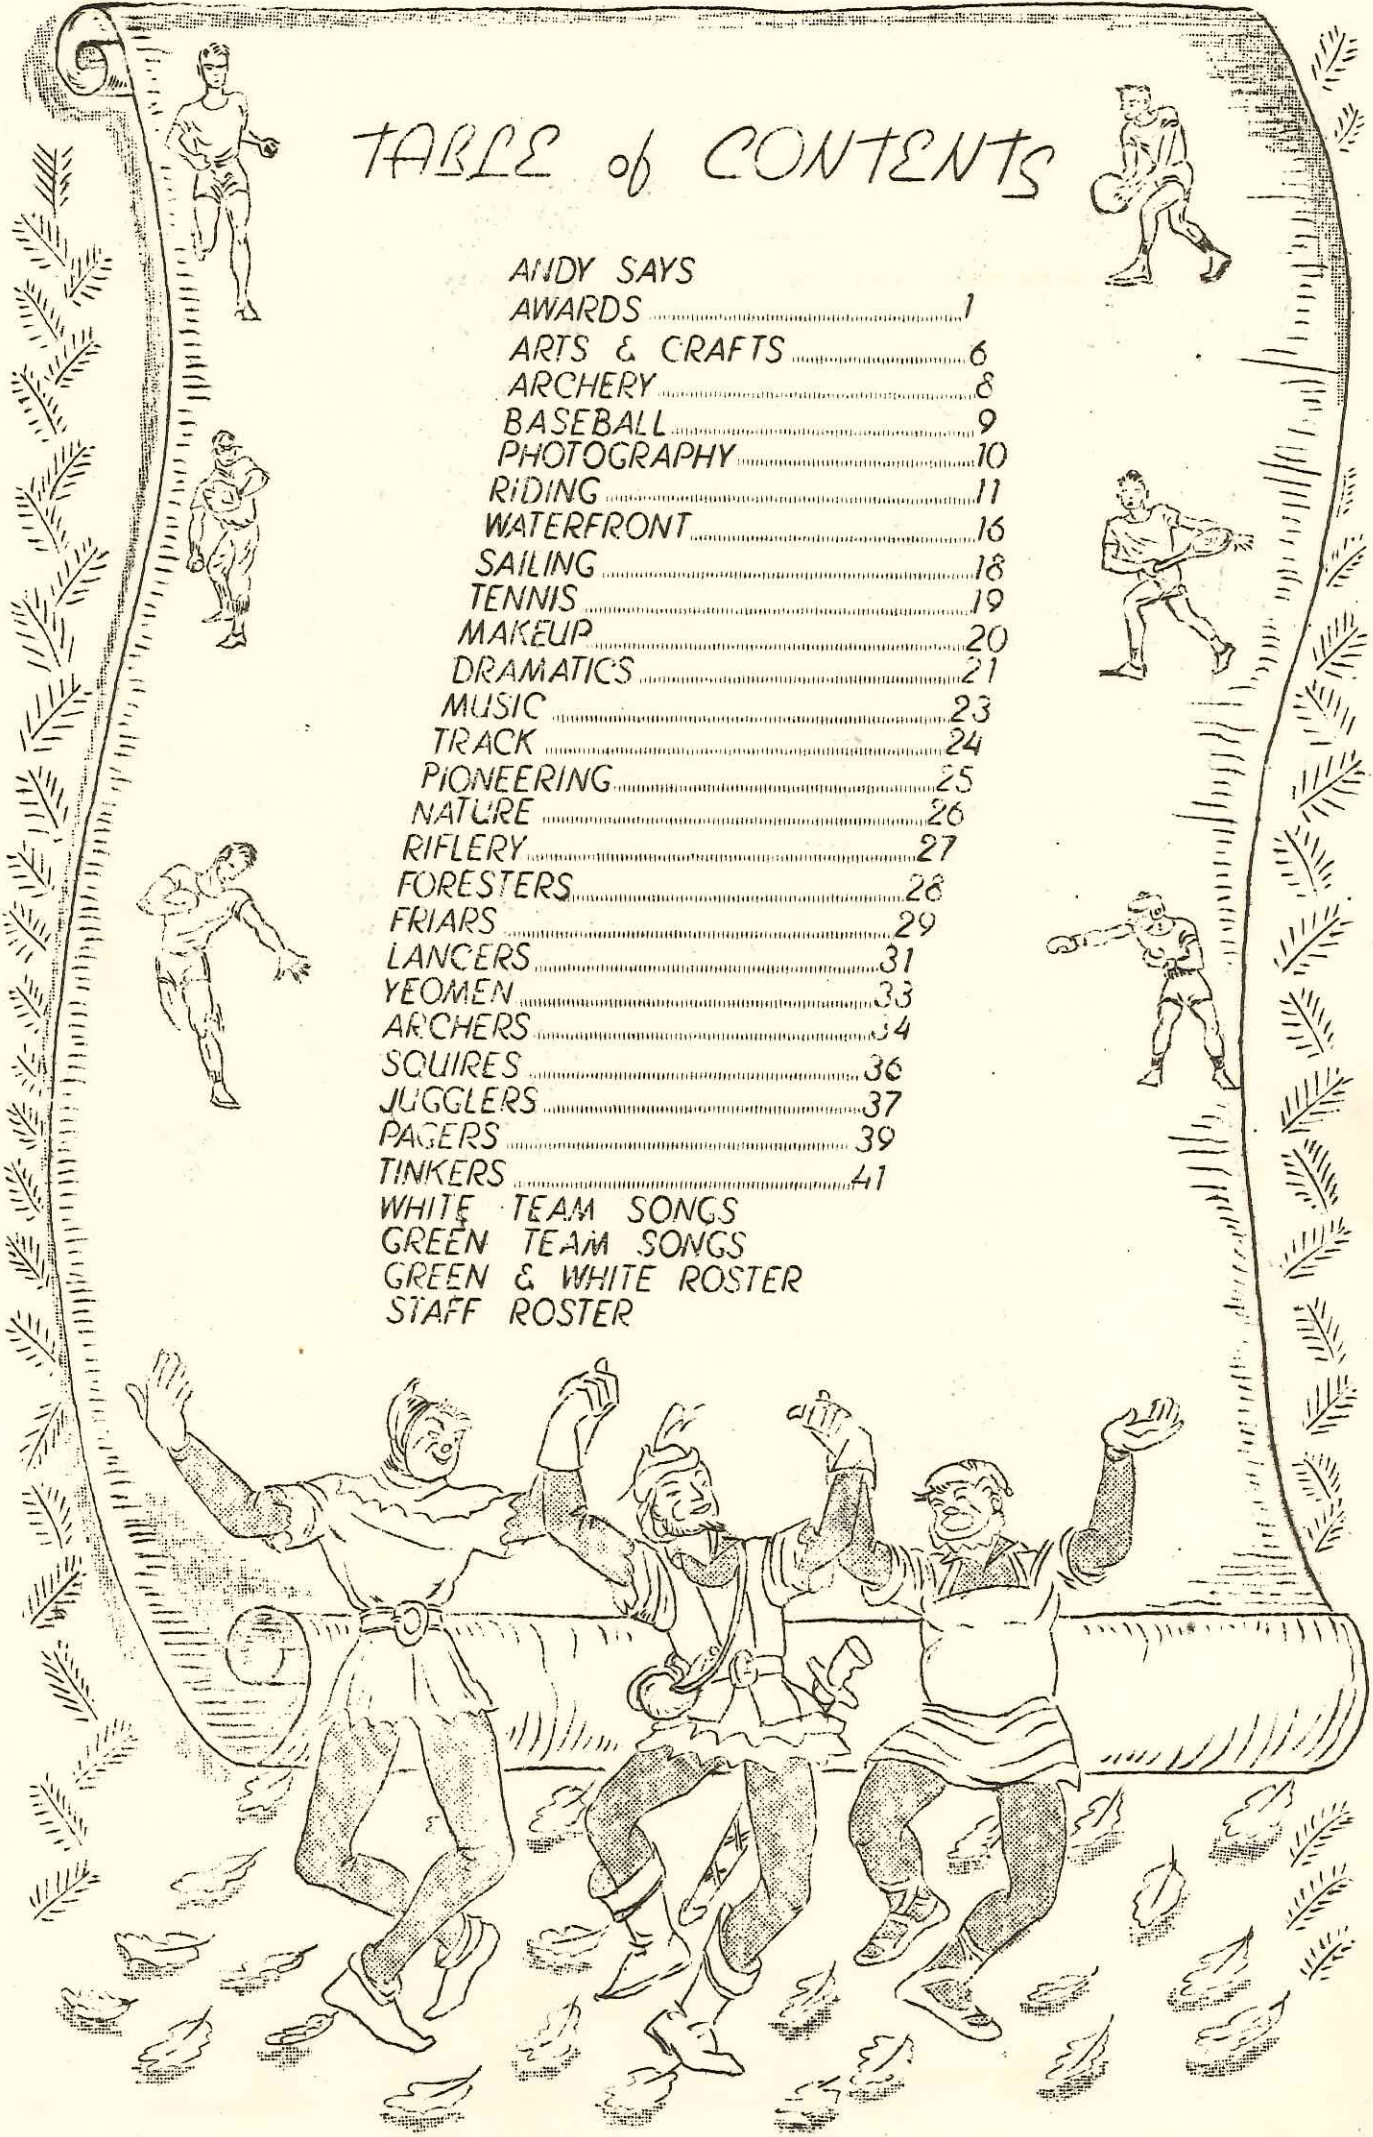 TABLE of CONTENTS
ANDY SAYS
AWARDS 1
ARTS & CRAFTS 6
ARCHERY 8
BASEBALL 9
PHOTOGRAPHY 10
RIDING 11
WATERFRONT 16
SAILING 18
TENNIS 19
MAKEUP 20
DRAMATICS 21
MUSIC 23
TRACK 24
PIONEERING 25
NATURE 26
RIFLERY 27
FORESTERS 28
FRIARS 29
LANCERS 31
YEOMEN 33
ARCHERS 34
SQUIRES 36
JUGGLERS 37
PAGERS 39
TINKERS 41
WHITE TEAM SONGS
GREEN TEAM SONGS
GREEN & WHITE ROSTER
STAFF ROSTER